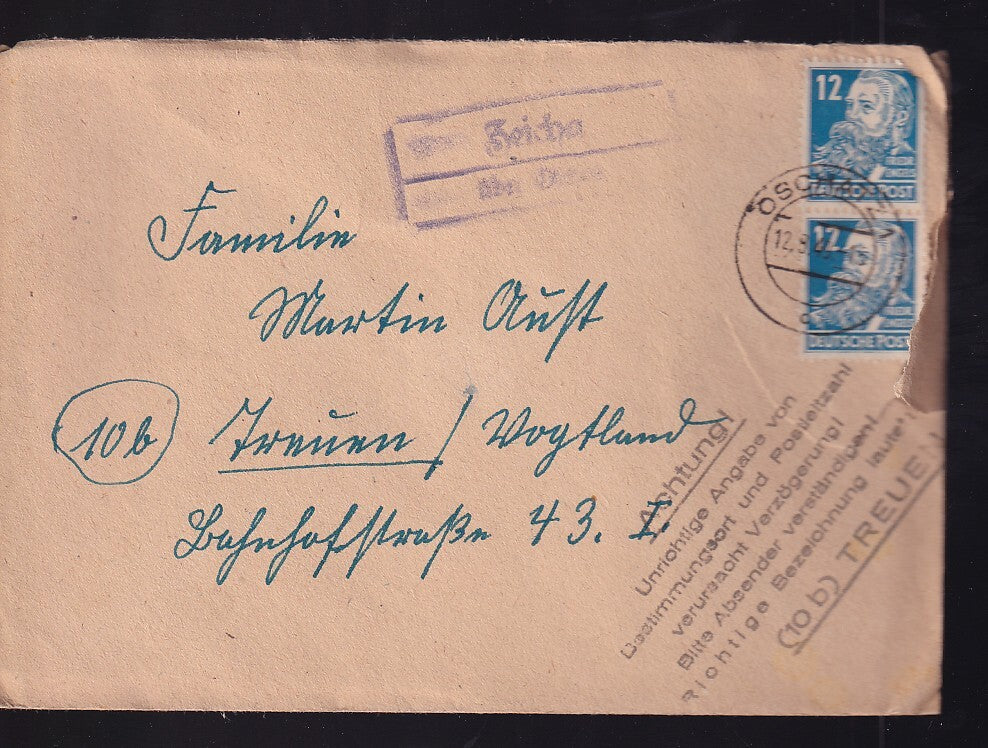 Zeicha
über
12
DEUTSCHE POST
OSCHATZ
12
DEUTSCHE POST
Familie
Martin Aust
10b Treuen / Vogtland
Bahnhofstraße 43. I.
Achtung!
Unrichtige Angabe von
Bestimmungsort und Postleitzahl
verursacht Verzögerung!
Bitte Absender verständigen!
Richtige Bezeichnung lautet:
(10 b) TREUEN